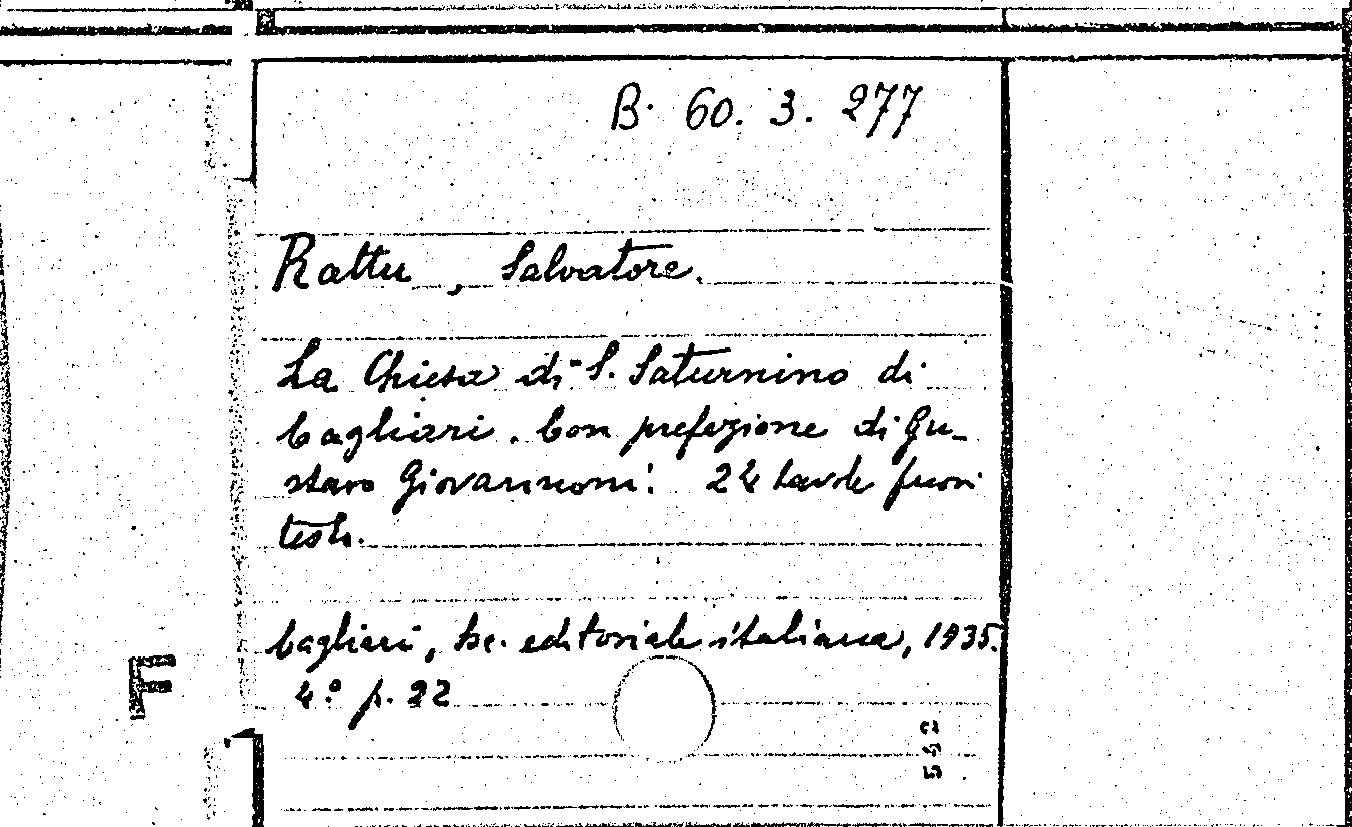 B. 60. 3. 277
Rattu, Salvatore.
La Chiesa di S. Saturnino di
Cagliari. Con prefazione di Gu-
stavo Giovannoni. 24 tavole fuori
testo.
Cagliari, Soc. editoriale italiana, 1935.
4.° p. 22
F